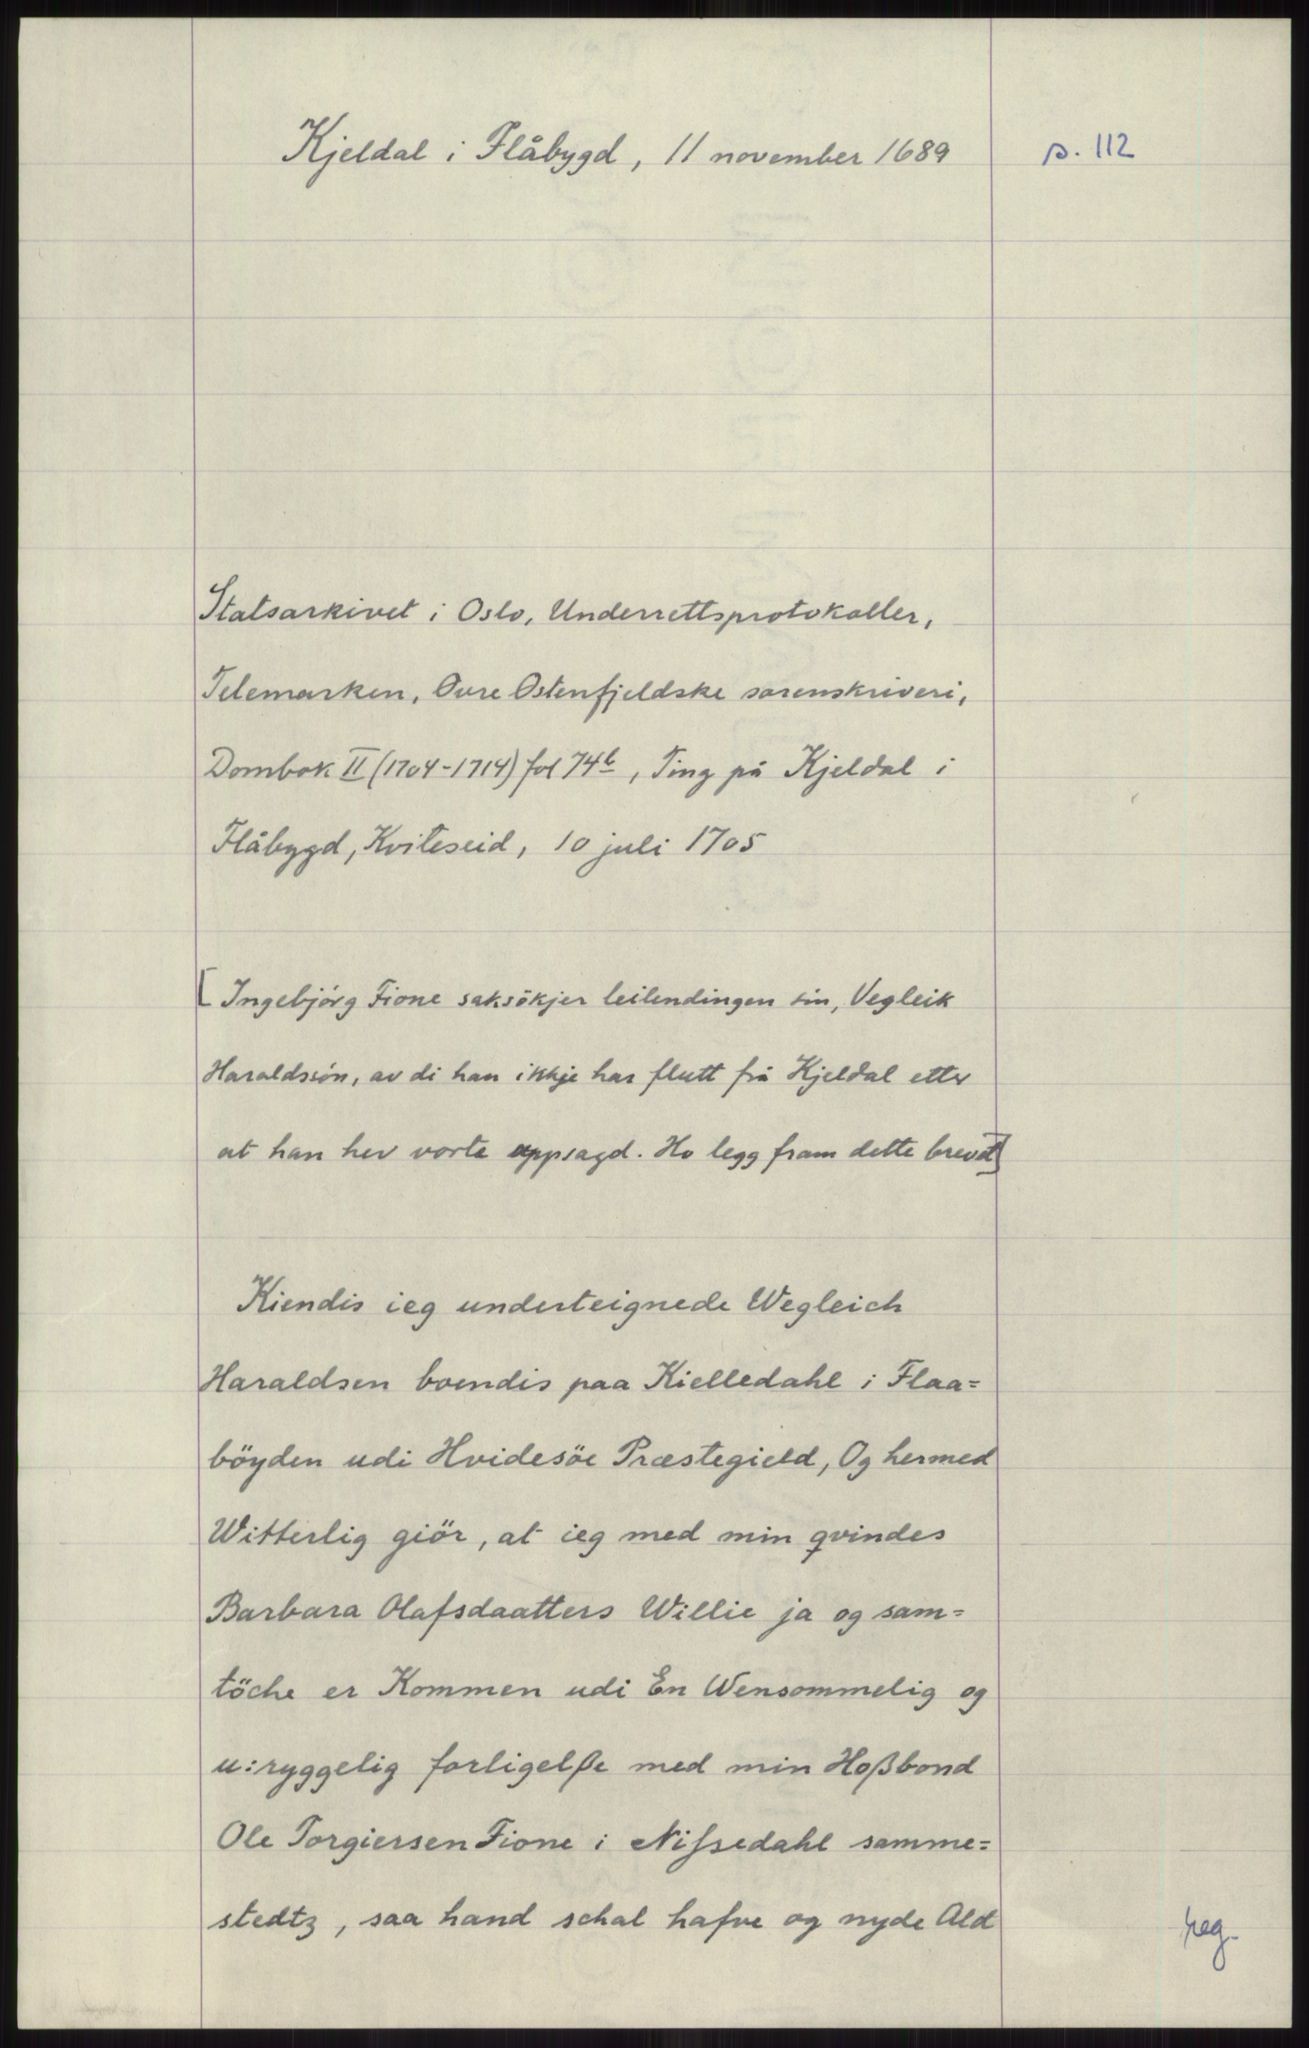 Kjeldal i Flåbygd, 11 november 1689
s. 112
Statsarkivet i Oslo, Underrettsprotokoller,
Telemarken, Övre Östenfjeldske sorenskriveri,
Dombok II (1704-1714) fol 74b, Ting på Kjeldal i
Flåbygd, Kviteseid, 10 juli 1705
[Ingebjörg Fione saksökjer leilendingen sin, Vegleik
Haraldssön, av di han ikkje har flutt frå Kjeldal etter
at han hev vorte uppsagd. Ho legg fram dette brevet]
Kiendis ieg underteignede Wegleich
Haraldsen boendis paa Kielledahl i Flaa=
böyden udi Hvidesöe Præstegield, Og hermed
Witterlig giör, at ieg med min qvindes
Barbara Olafsdaatters Willie ja og sam=
töche er Kommen udi En Wensommelig og
u:ryggelig forligelße med min Hoßbond
Ole Torgiersen Fione i Nissedahl samme=
stedtz, saa hand schal hafve og nyde Ald
reg.